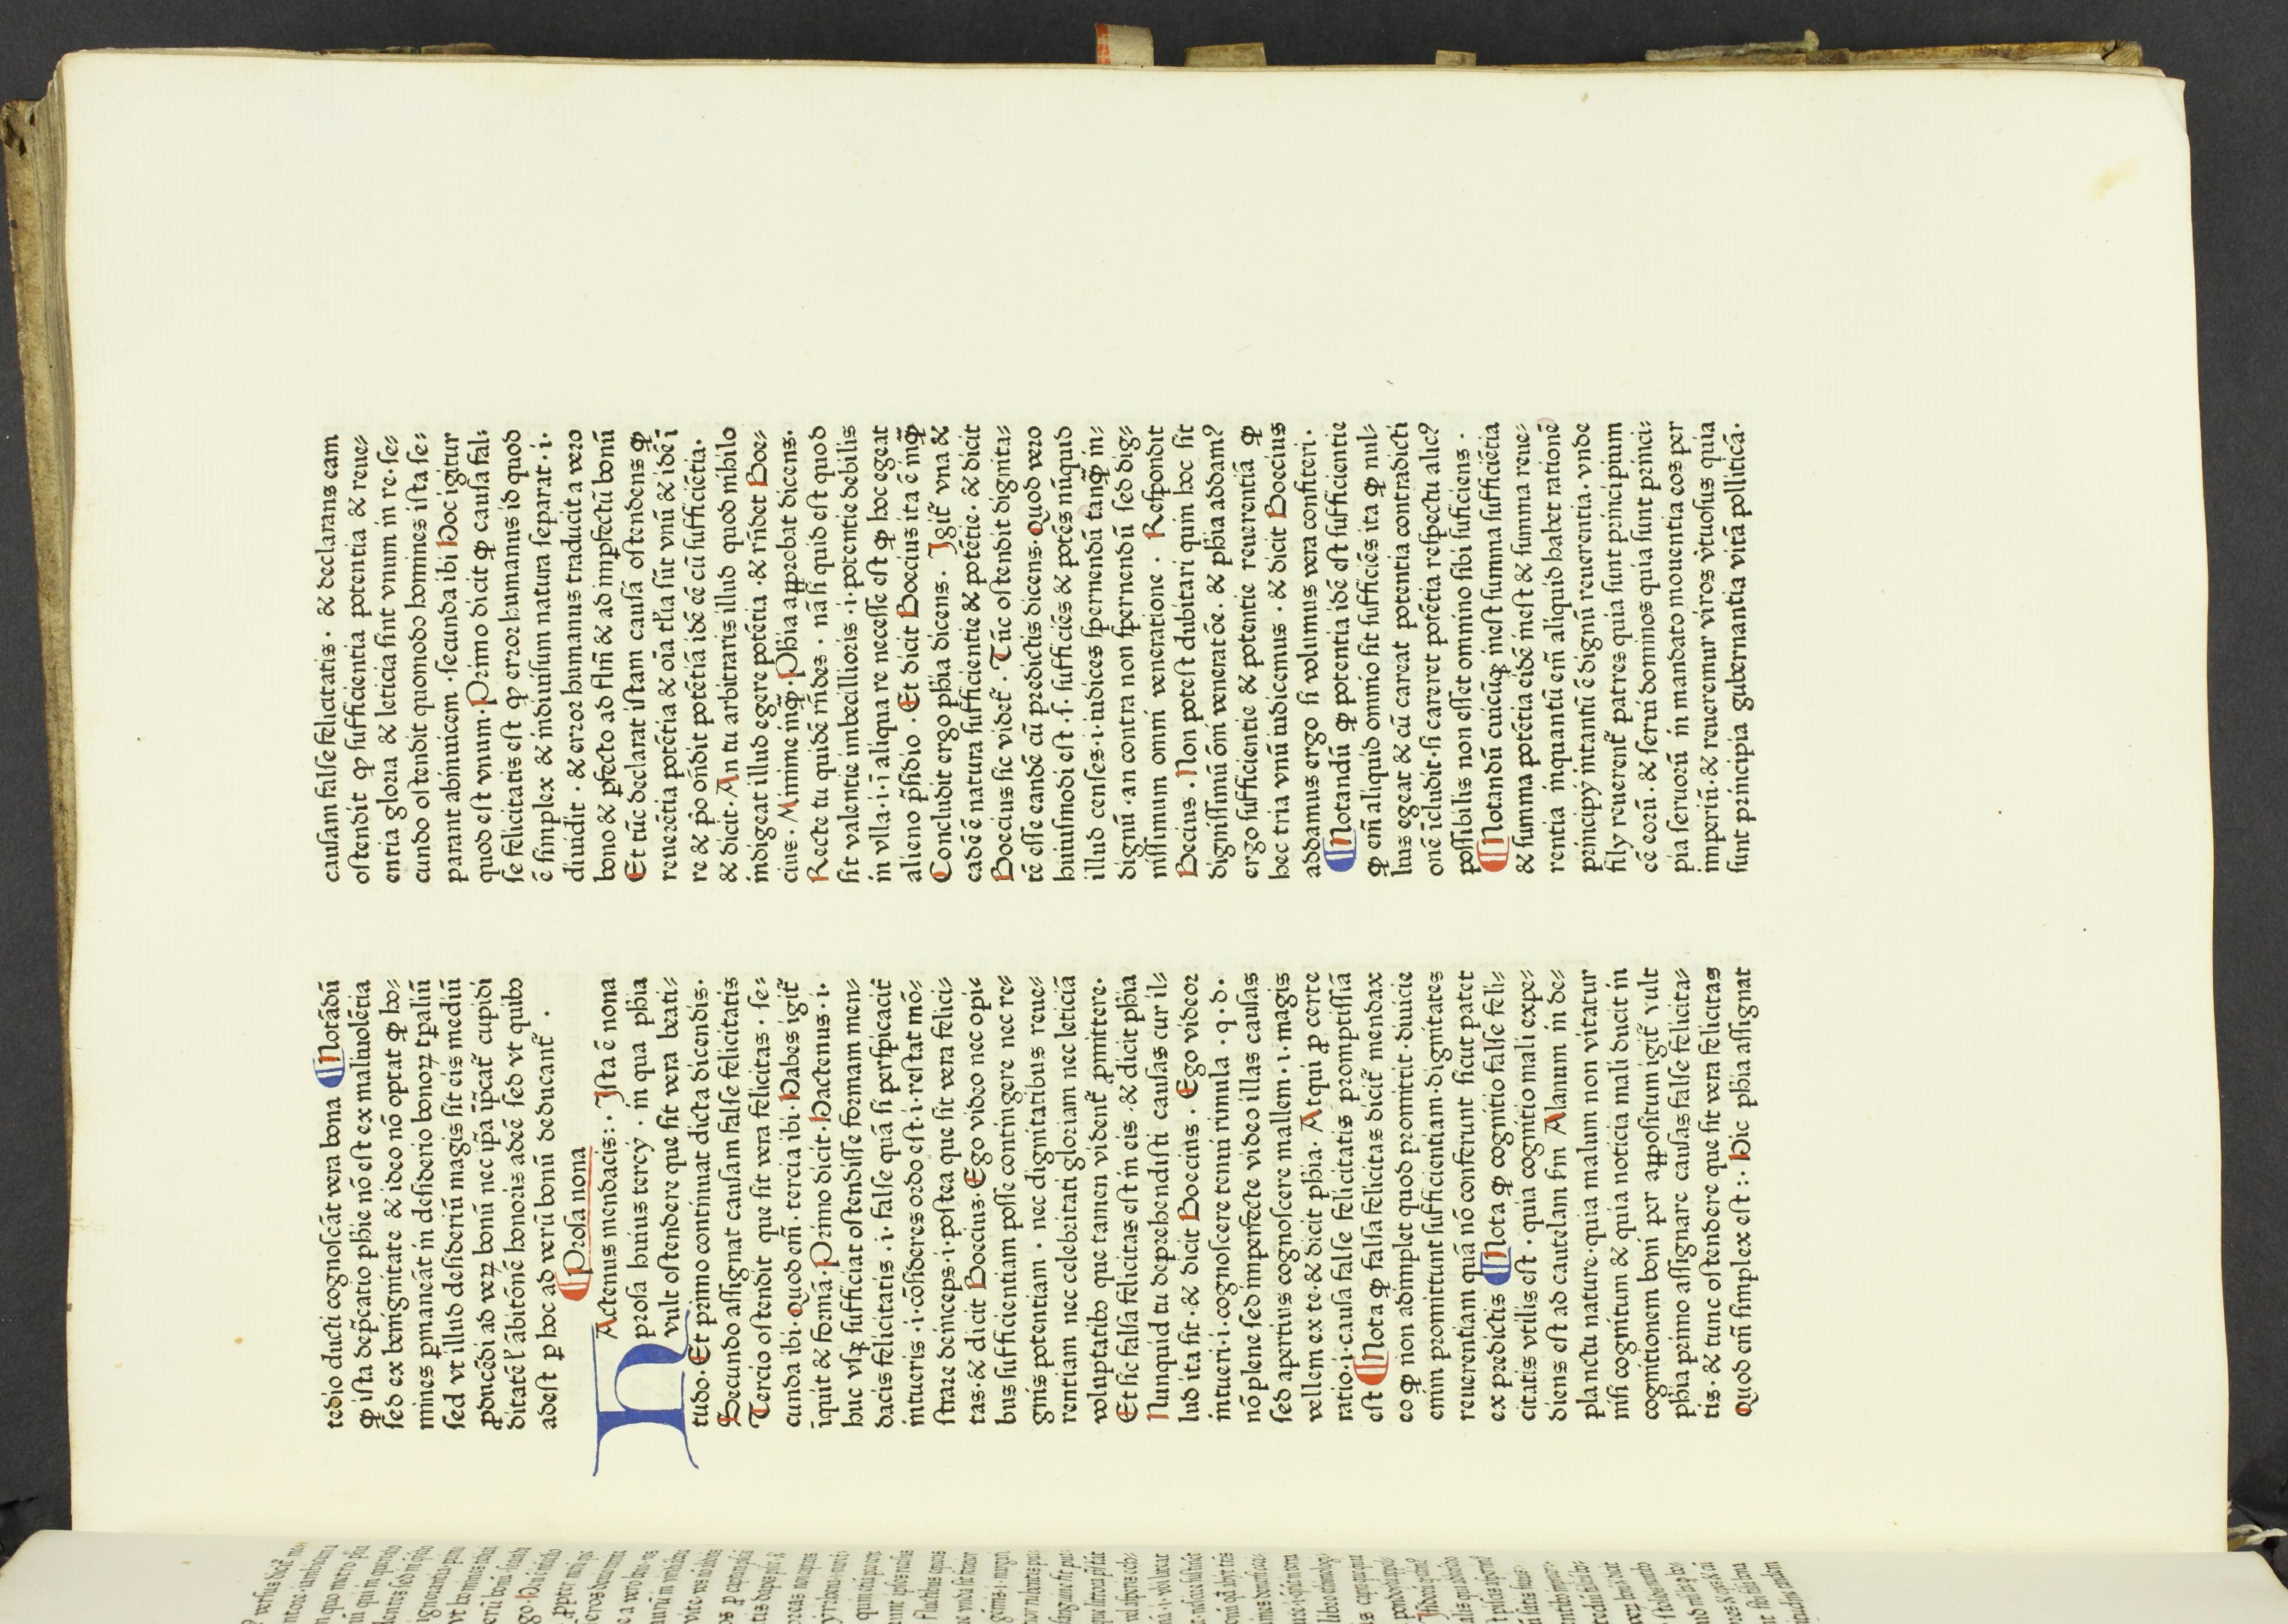 tedio ducti cognoscāt vera bona ¶Notādū
ꝙ ista dep̄catio ph̄ie nō est ex maliuolētia
sed ex benignitate & ideo nō optat ꝙ ho⸗
mines ꝑmaneāt in desiderio bonoꝝ tꝑaliū
sed vt illud desideriū magis sit eis mediū
ꝓoncēdi ad veꝝ bonū nec ip̄a īp̄cat̄ cupidi
ditatē l̓ ābitōnē honoris adeē sed vt quibꝰ
adest ꝑ hoc ad verū bonū deducant̄ .
¶Prosa nona
HActenus mendacis:. Ista ē nona
prosa huius tercÿ . in qua ph̄ia
vult ostendere que sit vera beati⸗
tudo. Et primo continuat dicta dicendis.
Secundo assignat causam false felicitatis
Tercio ostendit que sit vera felicitas . se⸗
cunda ibi. Quod em̄. tercia ibi. Habes igit̄
īquit & formā. Primo dicit. Hactenus .i.
huc vsꝙ sufficiat ostendisse formam men⸗
dacis felicitatis .i. false quā si perspicacit̄
intueris .i. cōsideres ordo est .i. restat mō⸗
strare deinceps .i. postea que sit vera felici⸗
tas. & dicit Boecius. Ego video nec opi⸗
bus sufficientiam posse contingere nec re⸗
gnis potentiam . nec dignitatibus reue⸗
rentiam nec celebritati gloriam nec leticiā
voluptatibꝰ que tamen vident̄ ꝓmittere.
Et sic falsa felicitas est in eis . & dicit ph̄ia
Nunquid tu deprehendisti causas cur il⸗
lud ita sit . & dicit Boecius . Ego videor
intueri .i. cognoscere tenui rimula . q. d.
nō plene sed imperfecte video illas causas
sed apertius cognoscere mallem .i. magis
vellem ex te. & dicit ph̄ia. Atqui ꝓ certe
ratio .i. causa false felicitatis promptissīā
est ¶Nota ꝙ falsa felicitas dicit̄ mendax
eo ꝙ non adimplet quod promittit . diuicie
enim promittunt sufficientiam. dignitates
reuerentiam quā nō conferunt sicut patet
ex predictis ¶Nota ꝙ cognitio false feli⸗
citatis vtilis est . quia cognitio mali expe⸗
diens est ad cautelam s̄m Alanum in de⸗
planctu nature . quia malum non vitatur
nisi cognitum & quia noticia mali ducit in
cognitionem boni per appositum igit̄ vult
ph̄ia primo assignare causas false felicita⸗
tis . & tunc ostendere que sit vera felicitas
Quod em̄ simplex est :. Hic ph̄ia assignat
causam false felicitatis . & declarans eam
ostendit ꝙ sufficientia potentia & reue⸗
entia gloria & leticia sint vnum in re. se⸗
cundo ostendit quomodo homines ista se⸗
parant abinuicem . secunda ibi Hoc igitur
quod est vnum. Primo dicit ꝙ causa fal⸗
se felicitatis est ꝙ error humanus id quod
ē simplex & indiuisum natura separat .i.
diuidit . & error humanus traducit a vero
bono & ꝑfecto ad flm̄ & ad imꝑfectū bonū
Et tūc declarat istam causā ostendens ꝙ
reuerētia potētia & oīa tl̓ia sūt vnū & idē ī
re & p̄o on̄dit potētiā idē eē cū sufficiētia.
& dicit . An tu arbitraris illud quod nihilo
indigeat illud egere potētia . & rn̄det Boe⸗
cius . Minime inꝙ̄. Ph̄ia approbat dicens.
Recte tu quidē rn̄des . nā si quid est quod
sit valentie imbecillioris .i. potentie debilis
in vlla .i. ī aliqua re necesse est ꝙ hoc egeat
alieno p̄sidio . Et dicit Boecius ita ē inꝙ̄
Concludit ergo ph̄ia dicens . Igit̄ vna &
eadē ē natura sufficientie & potētie . & dicit
Boecius sic videt̄ . Tūc ostendit dignita⸗
tē esse eandē cū predictis dicens. Quod vero
huiusmodi est .s. sufficiēs & potēs nūquid
illud censes .i. iudices spernendū tanꝙ̄ in⸗
dignū . an contra non spernendū sed dig⸗
nissimum omni veneratione . Respondit
Becius . Non potest dubitari quin hoc sit
dignissimū ōni veneratōe . & ph̄ia addam?
ergo sufficientie & potentie reuerentiā ꝙ
hec tria vnū iudicemus . & dicit Boecius
addamus ergo si volumus vera confiteri.
¶Notandū ꝙ potentia idē est sufficientie
ꝙ em̄ aliquid omnio sit sufficiēs ita ꝙ nul⸗
lius egeat & cū careat potentia contradicti
onē īcludit . si careret potētia respectu alic?
possibilis non esset omnino sibi suficiens .
¶Notandū cuicūꝙ inest summa sufficiētia
& summa potētia eidē inest & summa reue⸗
rentia inquantū em̄ aliquid habet rationē
principÿ intantū ē dignū reuerentia. vnde
filÿ reuerent̄ patres quia sunt principium
eē eorū . & serui dominos quia sunt princi⸗
pia seruorū in mandato mouentia eos per
imperiū . & reueremur viros v̓tuosus quia
sunt principia gubernantia vitā polliticā.